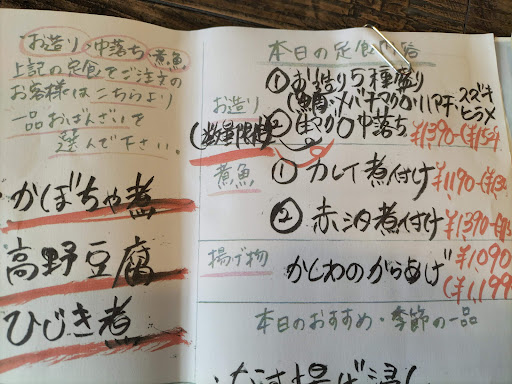 お造り 中落ち 煮魚
上記の定食でご注文の
お客様はこちらより
一品おばんざいを
選んで下さい。
かぼちゃ煮
高野豆腐
ひじき煮
本日の定食
お造り
①お造り5種盛り
(鯛・メバチマグロ・ハマチ・スズキ
ヒラメ
(数量限定)
②生マグロ中落ち ¥1390-
煮魚
①カレイ煮付け ¥1190-
②赤魚煮付け ¥1390-
揚げ物
かしわのからあげ ¥1,090
(¥1,199
本日のおすすめ・季節の一品